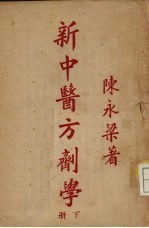 陳永梁著
新中醫方劑學
下冊